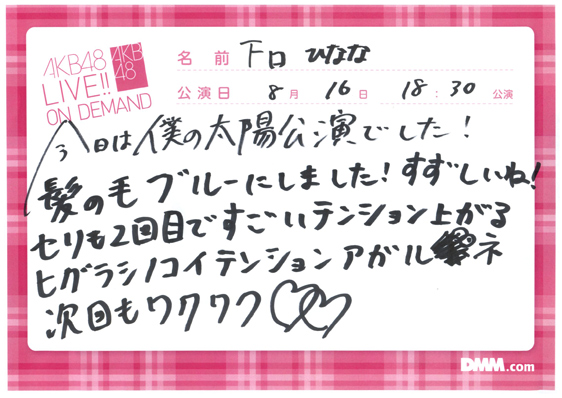 AKB48
LIVE!!
ON DEMAND
AKB
48
名前 下口 ひなな
公演日 8月 16日 18:30 公演
今日は僕の太陽公演でした!
髪の毛ブルーにしました!すずしいね!
セリも2回目ですごいテンション上がる
ヒグラシノコイテンションアガル ネ
次回もワクワク
DMM.com